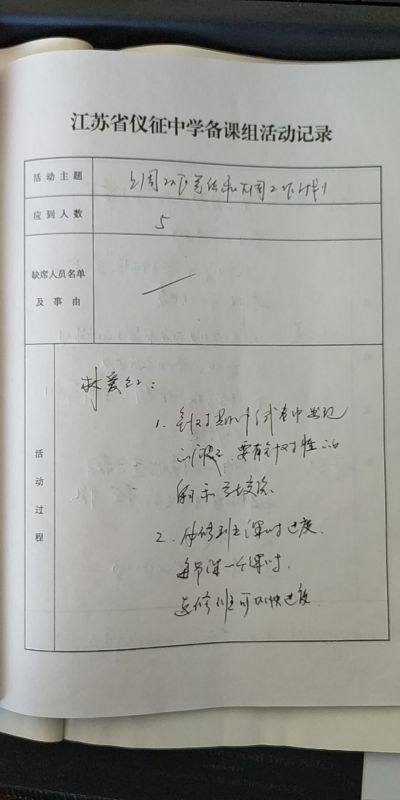 江苏省仪征中学备课组活动记录
活动主题 上周工作总结和本周工作计划
应到人数 5
缺席人员名单
及事由
活动过程
林爱红:
1. 针对期中试卷中出现
要有针对性
2. 必修班上课时进度.
每节课一个课时.
选修班可加快进度.